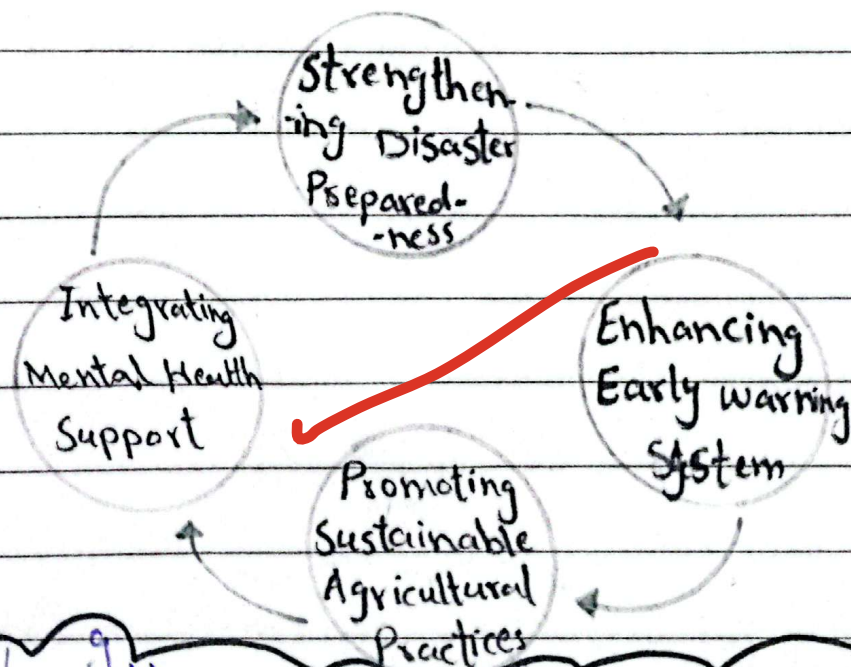 Strengthen-
-ing Disaster
Prepared-
-ness
Enhancing
Early warning
System
Promoting
Sustainable
Agricultural
Practices
Integrating
Mental Health
Support